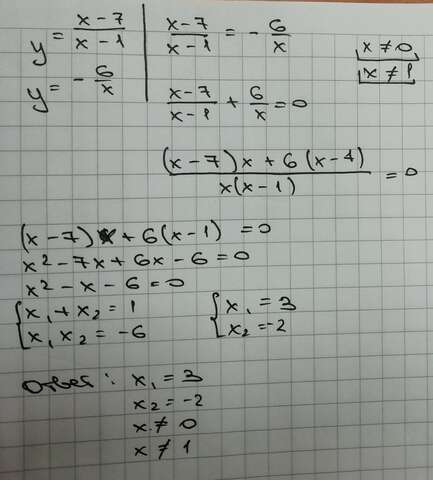 y = (x-7)/(x-1)
y = -6/x
(x-7)/(x-1) = -6/x
x ≠ 0
x ≠ 1
(x-7)/(x-1) + 6/x = 0
((x-7)x + 6(x-1))/(x(x-1)) = 0
(x-7)x + 6(x-1) = 0
x² - 7x + 6x - 6 = 0
x² - x - 6 = 0
{ x₁ + x₂ = 1
x₁ x₂ = -6
{ x₁ = 3
x₂ = -2
Ответ: x₁ = 3
x₂ = -2
x ≠ 0
x ≠ 1